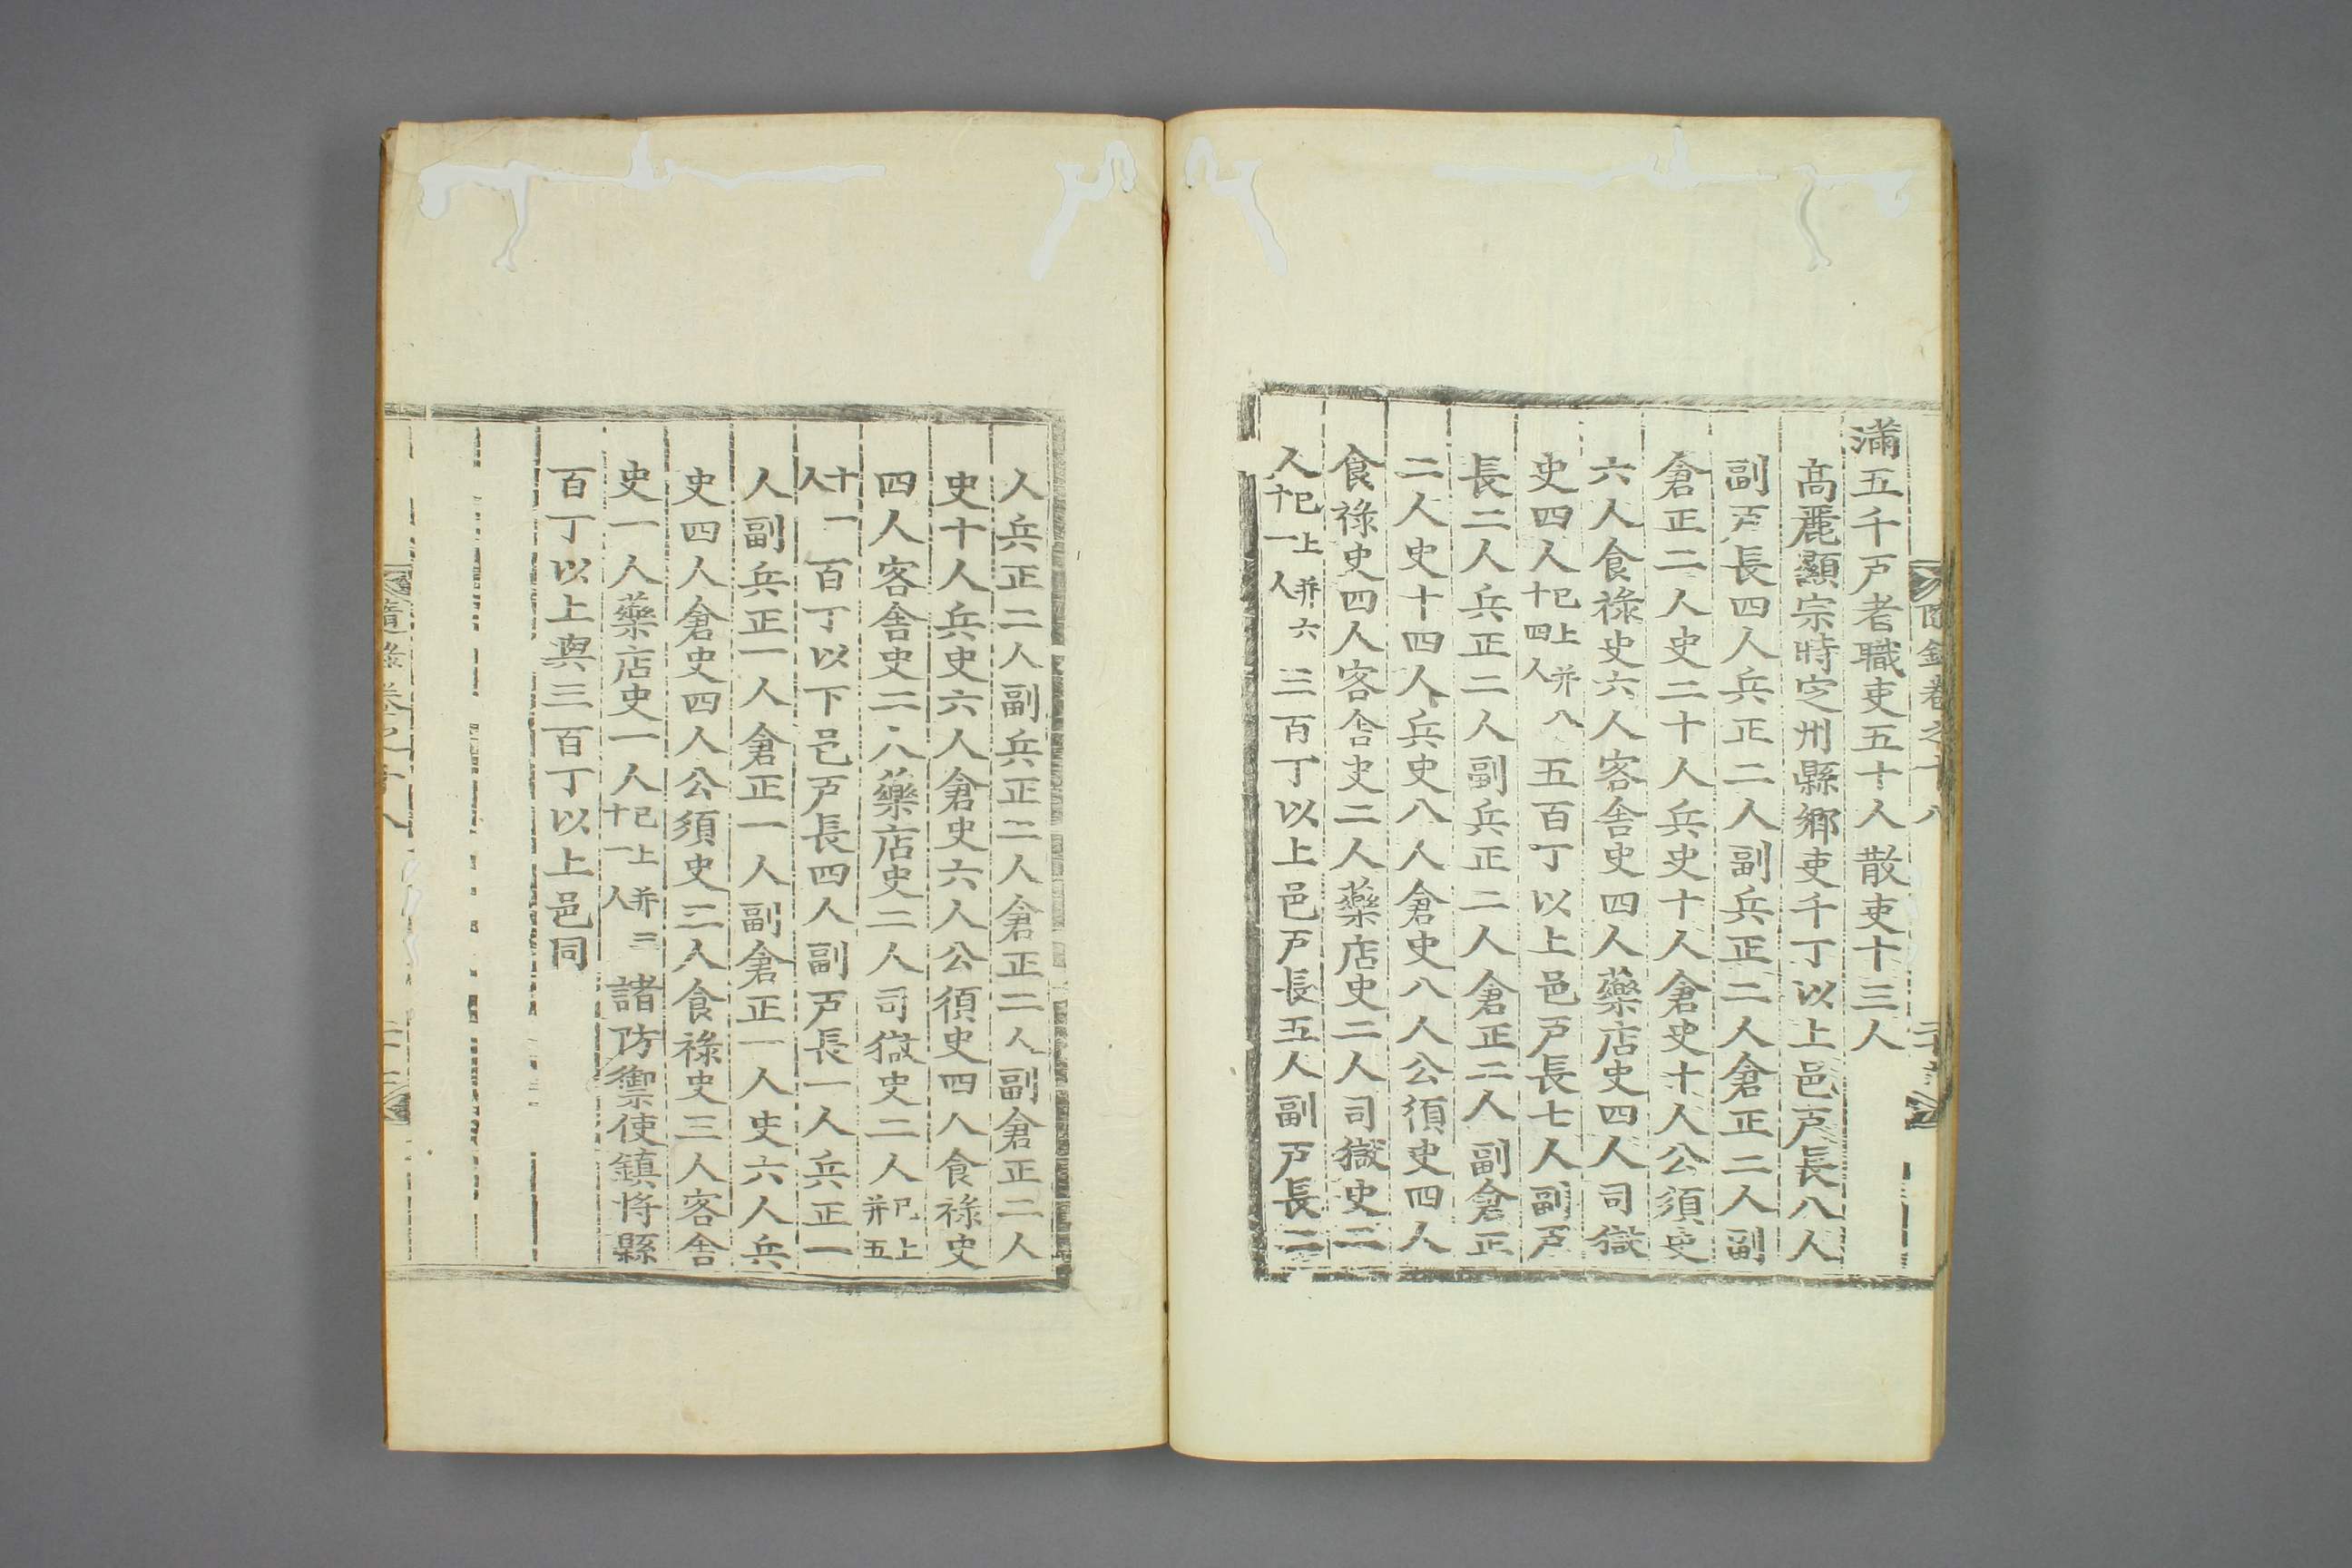 隨錄卷之十八
滿五千戶者職吏五十人散吏十三人
高麗顯宗時定州縣鄉吏千丁以上邑戶長八人
副戶長四人兵正二人副兵正二人倉正二人副
倉正二人史二十人兵史十人倉史十人公須史
六人食祿史六人客舍史四人藥店史四人司獄
史四人已上并八十四人五百丁以上邑戶長七人副戶
長二人兵正二人副兵正二人倉正二人副倉正
二人史十四人兵史八人倉史八人公須史四人
食祿史四人客舍史二人藥店史二人司獄史二
人已上并六十一人三百丁以上邑戶長五人副戶長二
人兵正二人副兵正二人倉正二人副倉正二人
史十人兵史六人倉史六人公須史四人食祿史
四人客舍史二人藥店史二人司獄史二人已上并五
十一人百丁以下邑戶長四人副戶長一人兵正一
人副兵正一人倉正一人副倉正一人史六人兵
史四人倉史四人公須史三人食祿史三人客舍
史一人藥店史一人已上并三十一人諸防禦使鎮將縣
百丁以上與三百丁以上邑同
隨錄卷之十八